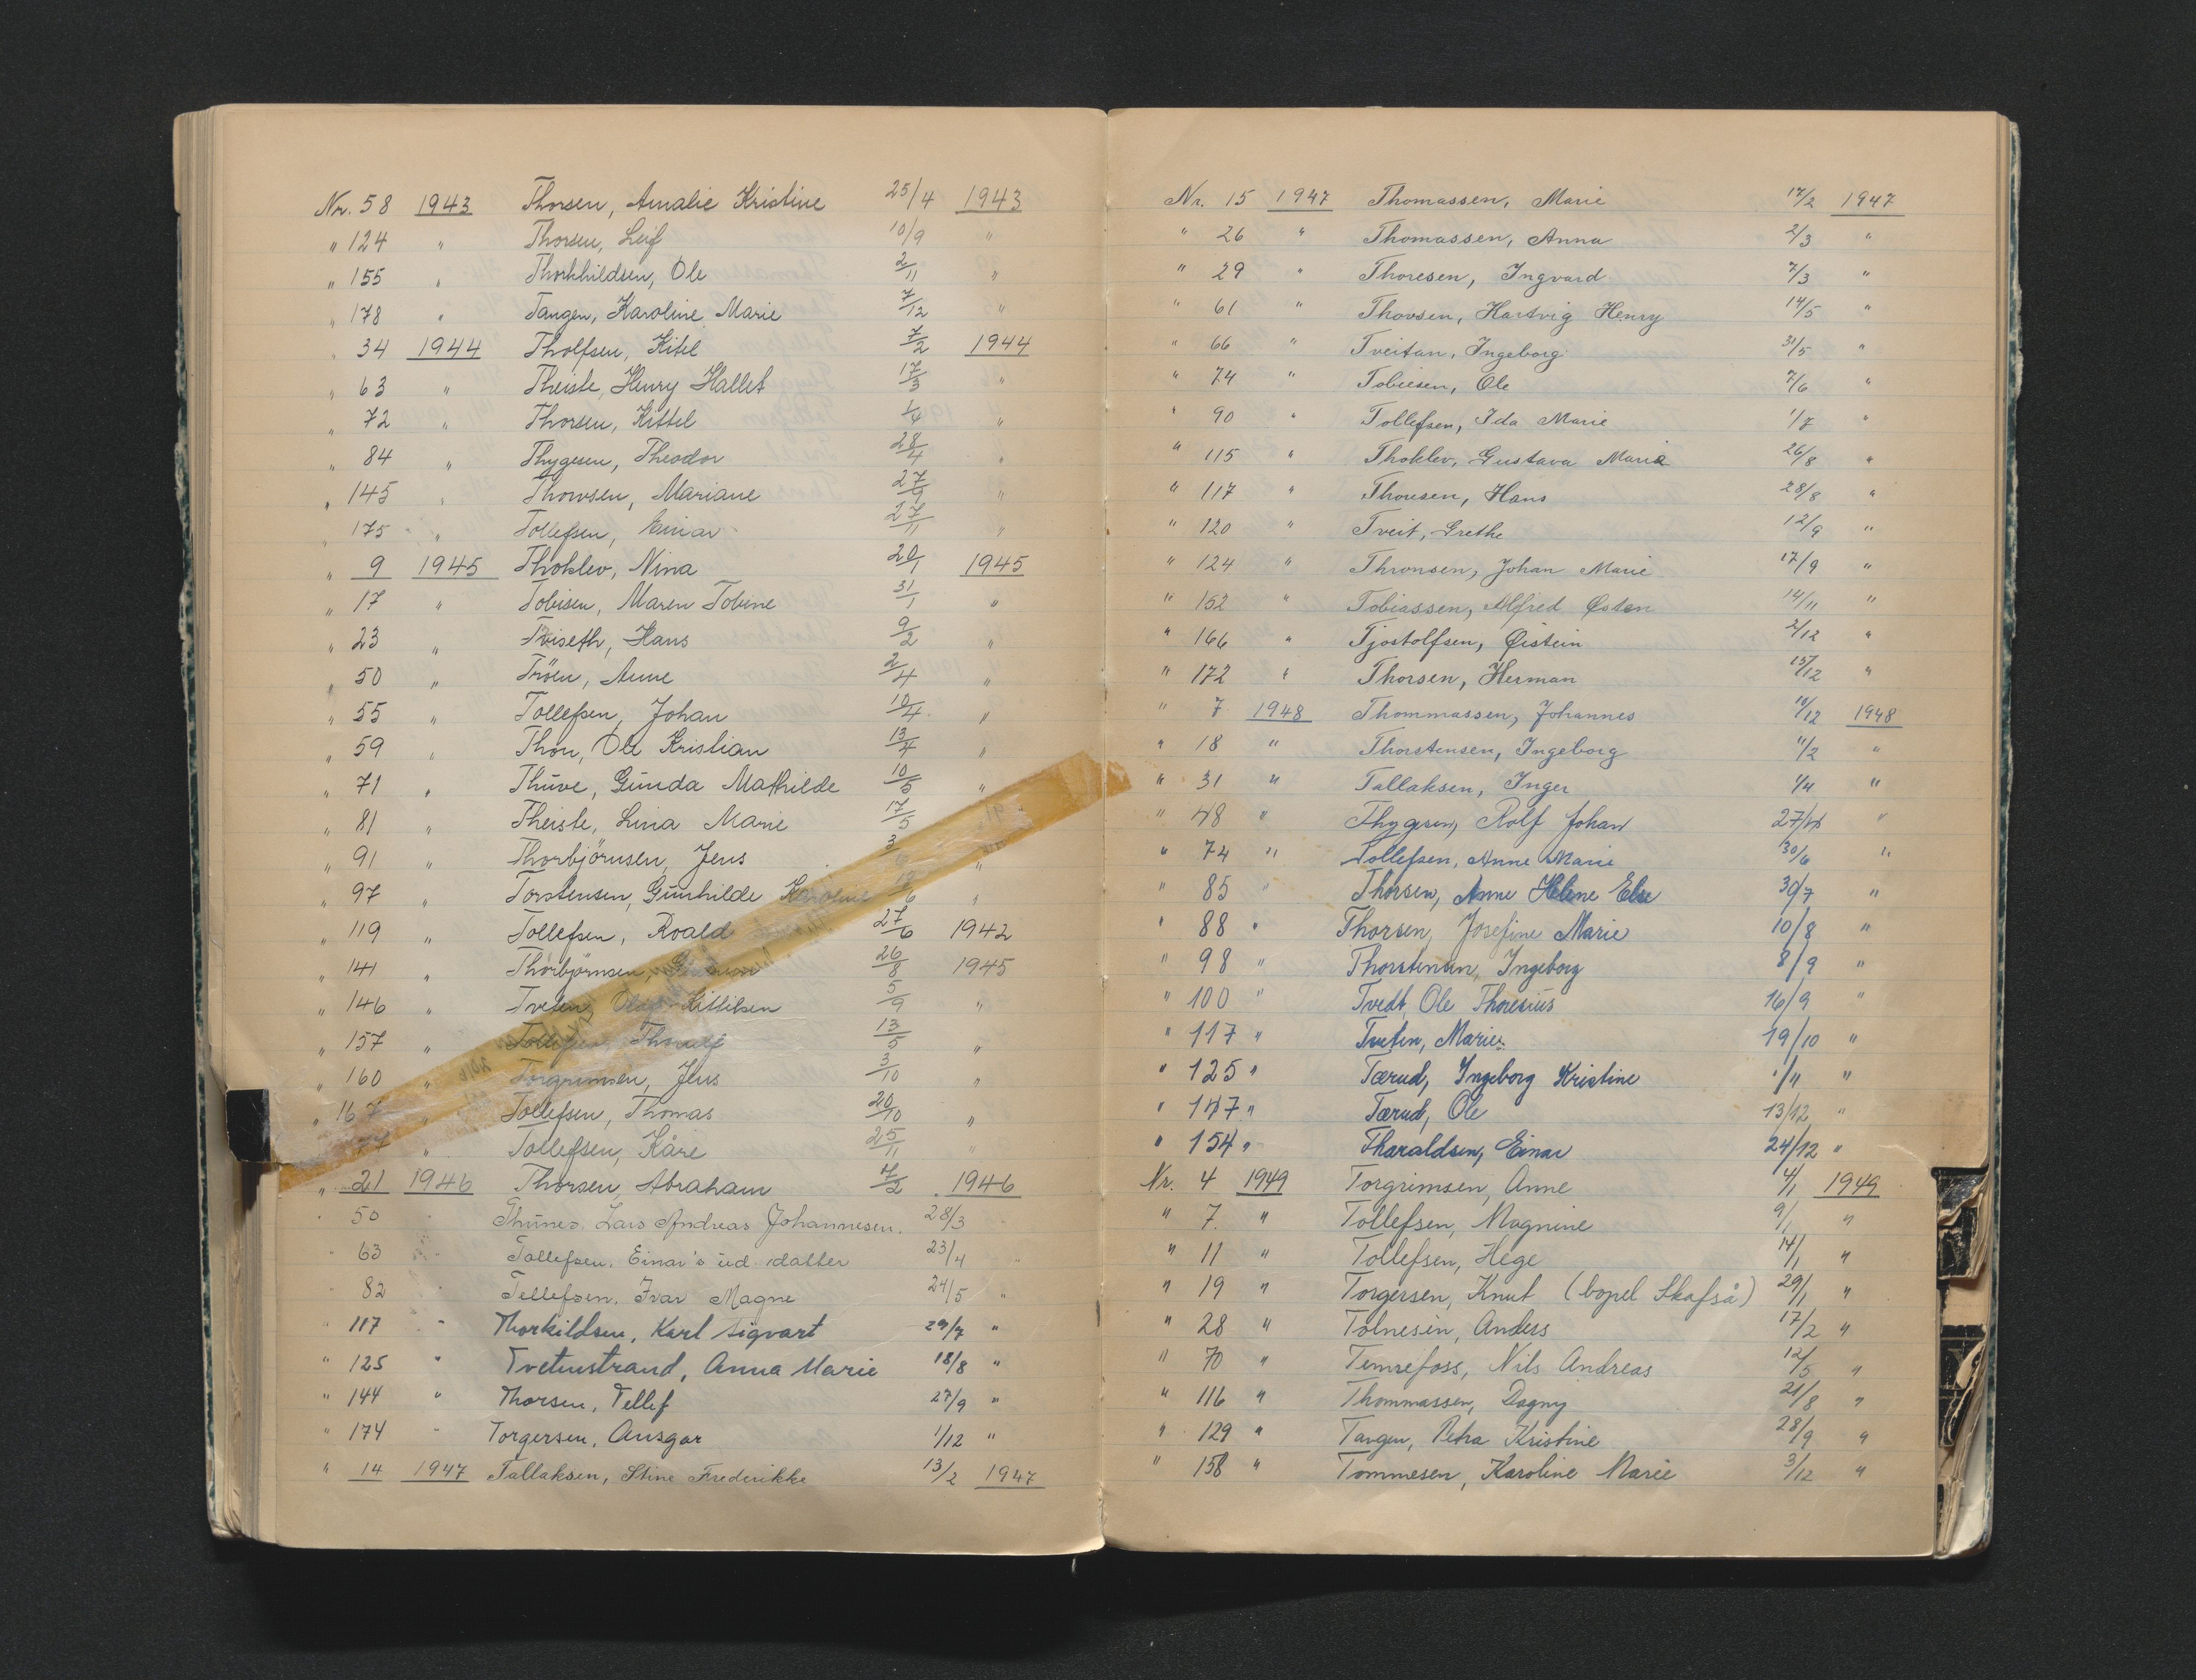 Nr. 58 1943 Thorsen, Amalie Kristine 25/4 1943
" 124 " Thorsen, Leif 10/9 "
" 155 " Thorkhildsen, Ole 2/11 "
" 178 " Tangen, Karoline Marie 7/12 "
" 34 1944 Tholfsen, Kitel 7/2 1944
" 63 " Theiste, Henry Hallef 17/3 "
" 72 " Thorsen, Kittel 1/4 "
" 84 " Thygesen, Theodor 28/4 "
" 145 " Thowsen, Mariane 27/9 "
" 175 " Tollefsen, Einar 27/11 "
" 9 1945 Thoklev, Nina 20/1 1945
" 17 " Tobisen, Maren Tobine 31/1 "
" 23 " Tviseth, Hans 9/2 "
" 50 " Tröen, Anne 2/4 "
" 55 " Tollefsen, Johan 10/4 "
" 59 " Thon, Ole Kristian 13/4 "
" 71 " Thuve, Gunda Mathilde 10/5 "
" 81 " Theiste, Lina Marie 17/5
" 91 " Thorbjörnsen, Jens 3 "
" 97 " Torstensen, Gunhilde Karoline 12/6 "
" 119 " Tollefsen, Roald 27/6 1942
" 141 " Thorbjörnsen, 26/8 1945
" 146 " Tveten, Olav Kittilsen 5/9 "
" 157 " Tollefsen, 13/5 "
" 160 " Torgrimsen, Jens 3/10 "
" 167 " Tollefsen, Thomas 20/10 "
" Tollefsen, Kåre 25/11 "
" 21 1946 Thorsen, Abraham 7/2 1946
" 50 Thunes, Lars Andreas Johannesen. 28/3
" 63 " Tollefsen, Einar's ud. datter 23/4 "
" 82 " Tellefsen, Ivar Magne 24/5 "
" 117 " Thorkildsen, Karl Sigvart 29/7 "
" 125 " Tvetenstrand, Anna Marie 18/8 "
" 144 " Thorsen, Tellef 27/9 "
" 174 " Torgersen, Ansgar 1/12 "
" 14 1947 Tallaksen, Stine Frederikke 13/2 1947
Nr. 15 1947 Thomassen, Marie 17/2 1947
" 26 " Thomassen, Anna 2/3 "
" 29 " Thoresen, Ingvard 7/3 "
" 61 " Thovsen, Hartvig Henry 14/5 "
" 66 " Tveitan, Ingeborg 31/5 "
" 74 " Tobiesen, Ole 7/6 "
" 90 " Tollefsen, Ida Marie 1/7 "
" 115 " Thoklev, Gustava Maria 26/8 "
" 117 " Thousen, Hans 28/8 "
" 120 " Tveit, Grethe 12/9 "
" 124 " Thronsen, Johan Marie 17/9 "
" 152 " Tobiassen, Alfred Østen 14/11 "
" 166 " Tjostolfsen, Øistein 2/12 "
" 172 " Thorsen, Herman 15/12 "
" 7 1948 Thommassen, Johannes 10/12 1948
" 18 " Thorstensen, Ingeborg 11/2 "
" 31 " Tallaksen, Inger 1/4 "
" 48 " Thygesen, Rolf Johan 27/4 "
" 74 " Tollefsen, Anne Marie 30/6 "
" 85 " Thorsen, Anne Helene Else 30/7 "
" 88 " Thorsen, Josefine Marie 10/8 "
" 98 " Thorstensen, Ingeborg 8/9 "
" 100 " Tvedt, Ole Thoresius 16/9 "
" 117 " Tveten, Marie 19/10 "
" 125 " Tærud, Ingeborg Kristine 1/11 "
" 147 " Tærud, Ole 13/12 "
" 154 " Tharaldsen, Einar 24/12 "
Nr. 4 1949 Torgrimsen, Anne 4/1 1949
" 7. " Tollefsen, Magnine 9/1 "
" 11 " Tollefsen, Hege 14/1 "
" 19 " Torgersen, Knut (bopel Skafså) 29/1 "
" 28 " Tolnesen, Anders 17/2 "
" 70 " Temsefoss, Nils Andreas 12/5 "
" 116 " Thommassen, Dagny 21/8 "
" 129 " Tangen, Petra Kristine 28/9 "
" 158 " Tommesen, Karoline Marie 3/12 "